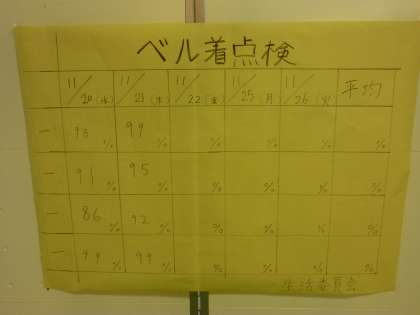 ベル着点検
11/20(水) 11/21(木) 11/22(金) 11/25(月) 11/26(火) 平均
一 93% 99% % % % %
一 91% 95% % % % %
一 86% 92% % % % %
一 99% 99% % % % %
生活委員会